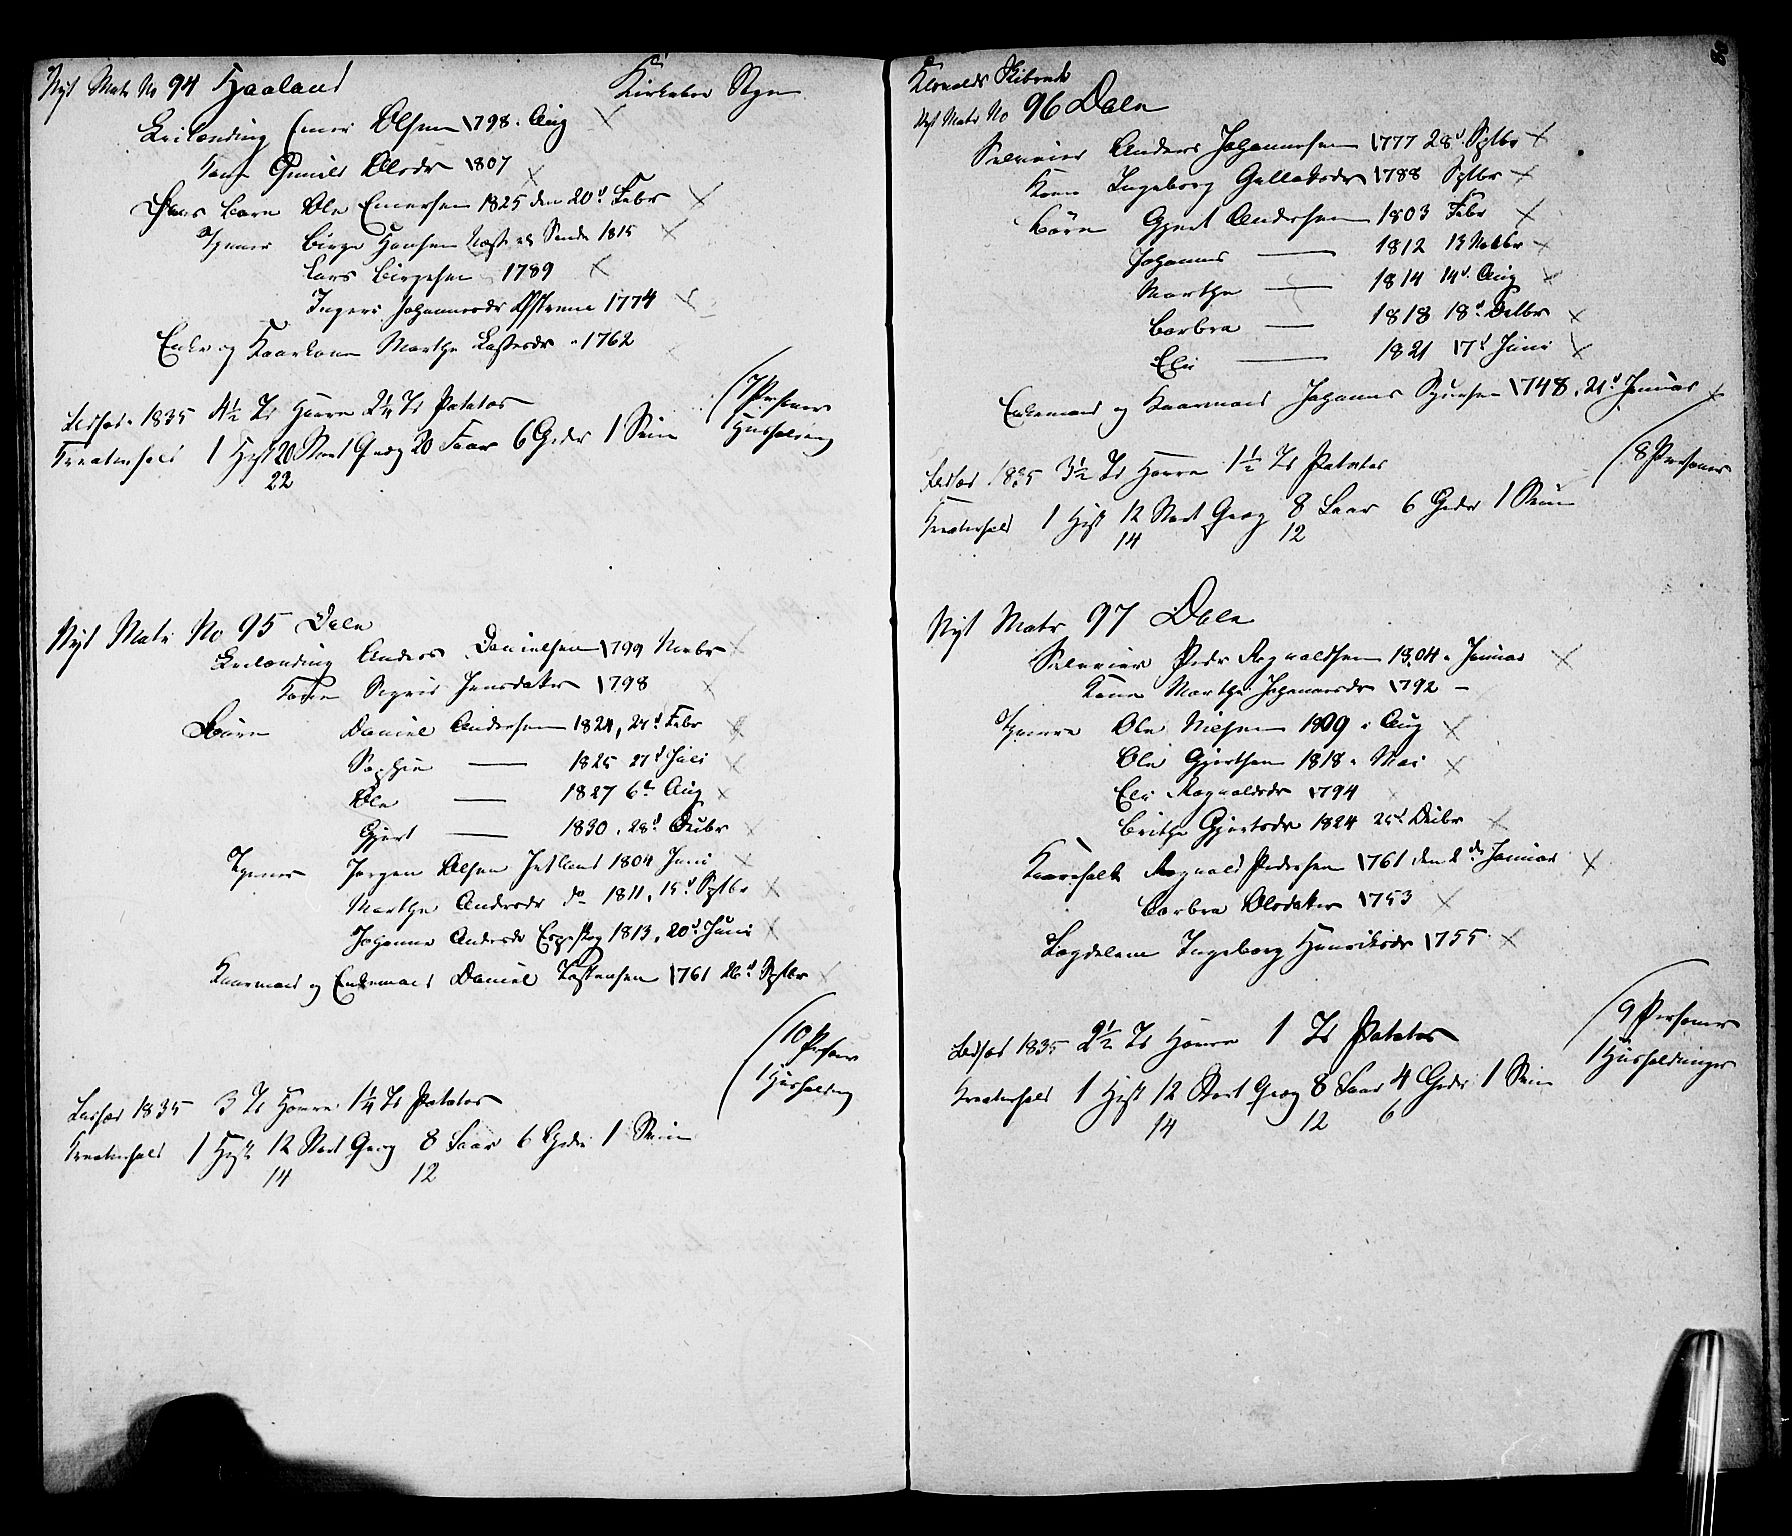 Nyt Matr No 94 Haaland Kirkebøe Sogn
Leilænding Einer Olsen 1798. Aug
Kone Gunild Olsdr 1807
Deres Barn Ole Einersen 1825 den 20d Febr
Tjenere Birge Hansen 1815
Lars Birgesen 1789
Ingeri Johannesdr 1774
Enke og Kaarkone Marthe 1762
Udsæd 1835 4½ Td Havre 2¼ Td Potatos (7 Personer
Kreaturhold 1 Hest 20 Stort Qvæg 20 Faar 6 Geder 1 Sviin 1 Husholding
22
Nyt Matr No 95 Dale
Leilænding Anders Danielsen 1799 Novbr
Kone Sigrid Jensdatter 1798
Børn Daniel Andersen 1824, 27d Febr
Sophie — 1825 27d Juli
Ole — 1827 6te Aug
Gjert — 1830. 28d Decbr
Tjenere Jørgen Olsen Jetland 1804 Juni
Marthe Andersdr do 1811, 15d Septbr
Johanne Andersdr Espeskog 1813, 20d Juni
Kaarmand og Enkemand Daniel Tostensen 1761 26d Septbr
(10 Personer
1 Husholding
Udsæd 1835 3 Td Havre 1¼ Td Potatos
Kreaturhold 1 Hest 12 Stort Qvæg 8 Faar 6 Geder 1 Sviin
14 12
Skibrede
Nyt Matr No 96 Dale
Selveier Anders Johannesen 1777 28d Septbr
Kone Ingeborg Gullaksdr 1788 Septbr
Børn Gjert Andersen 1803 Febr
Johannes — 1812 13 Novbr
Marthe — 1814 14d Aug
Barbra — 1818 18d Octbr
Eli — 1821 17d Juni
Enkemand og Kaarmand Johannes 1748, 21d Januar
(8 Personer
Udsæd 1835 3½ Td Havre 1½ Td Potatos
Kreaturhold 1 Hest 12 Stort Qvæg 8 Faar 6 Geder 1 Sviin
14 12
Nyt Matr 97 Dale
Selveier Peder Ragnaldsen 1804 Januar
Kone Marthe Johannesdr 1792 —
Tjenere Ole Nielsen 1809 Aug
Ole Gjertsen 1818 Mai
Eli Ragnaldsdr 1794
Brithe Gjertsdr 1824 25d Decbr
Kaarfolk Ragnald Pedersen 1761 den 2den Januar
Barbra Olsdatter 1753
Lægdelem Ingeborg Henriksdr 1755
(9 Personer
1 Husholdninger
Udsæd 1835 2½ Td Havre 1 Td Potatos
Kreaturhold 1 Hest 12 Stort Qvæg 8 Faar 4 Geder 1 Sviin
14 12 6